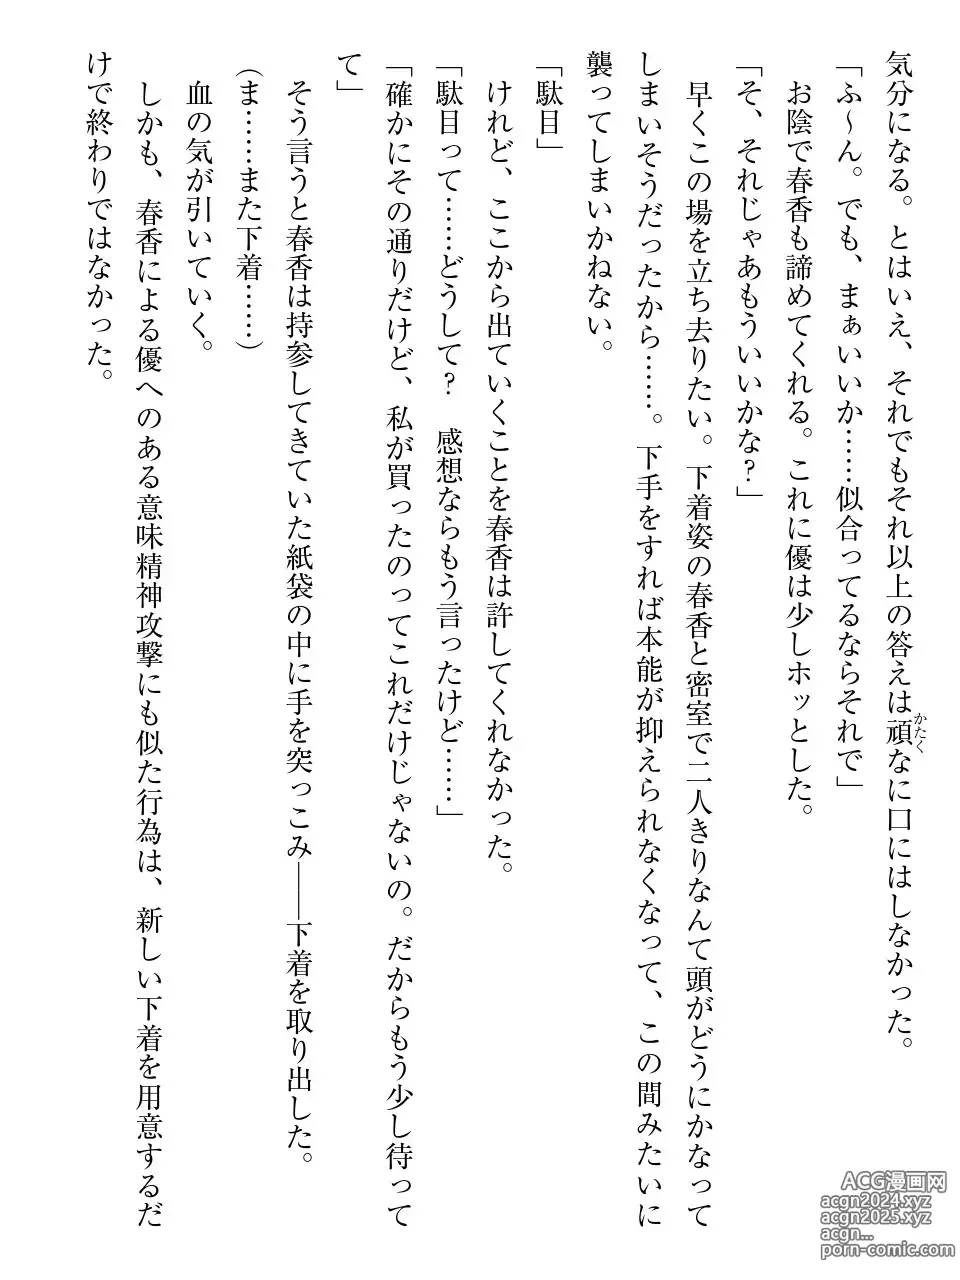 気分になる。とはいえ、それでもそれ以上の答えは頑なに口にはしなかった。
かたく
「ふ～ん。でも、まぁいいか……似合ってるならそれで」
お陰で春香も諦めてくれる。これに優は少しホッとした。
「そ、それじゃあもういいかな？」
早くこの場を立ち去りたい。下着姿の春香と密室で二人きりなんて頭がどうにかなって
しまいそうだったから……。下手をすれば本能が抑えられなくなって、この間みたいに
襲ってしまいかねない。
「駄目」
けれど、ここから出ていくことを春香は許してくれなかった。
「駄目って……どうして？　感想ならもう言ったけど……」
「確かにその通りだけど、私が買ったのってこれだけじゃないの。だからもう少し待って
て」
そう言うと春香は持参してきていた紙袋の中に手を突っこみ――下着を取り出した。
（ま……また下着……）
血の気が引いていく。
しかも、春香による優へのある意味精神攻撃にも似た行為は、新しい下着を用意するだ
けで終わりではなかった。
ACG漫画网
acgn2024.xyz
acgn2025.xyz
acgn...
porn-comic.com